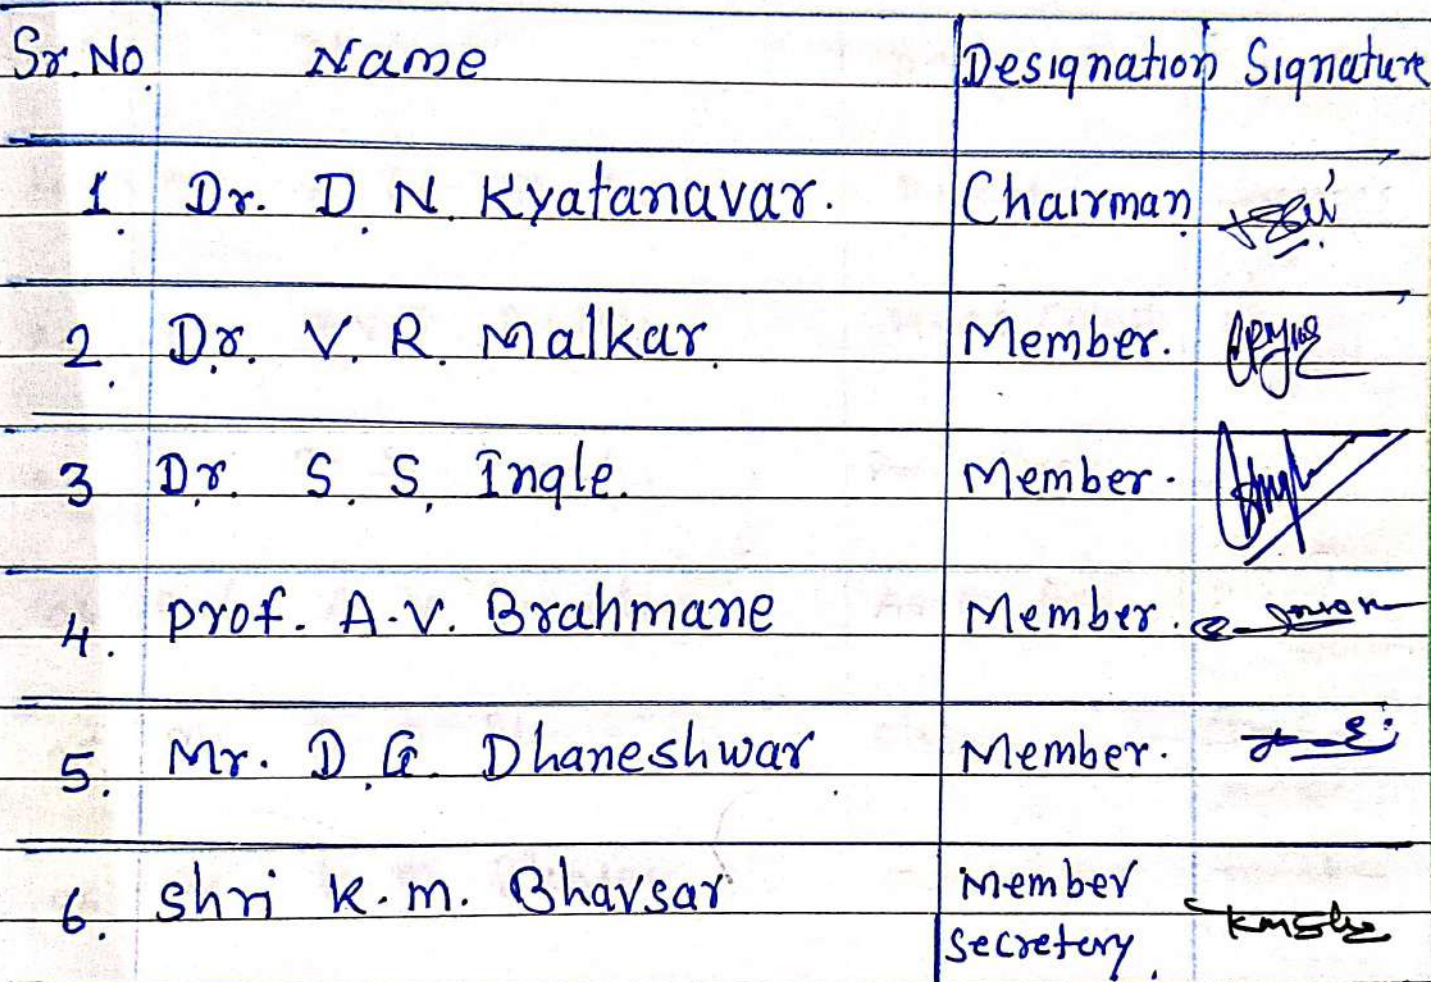 Sr. No. Name Designation Signature
1. Dr. D. N. Kyatanavar. Chairman.
2. Dr. V. R. Malkar. Member.
3 Dr. S. S. Ingle. Member.
4. Prof. A.V. Brahmane Member.
5. Mr. D. G. Dhaneshwar. Member.
6. Shri K.M. Bhavsar Member
Secretery.